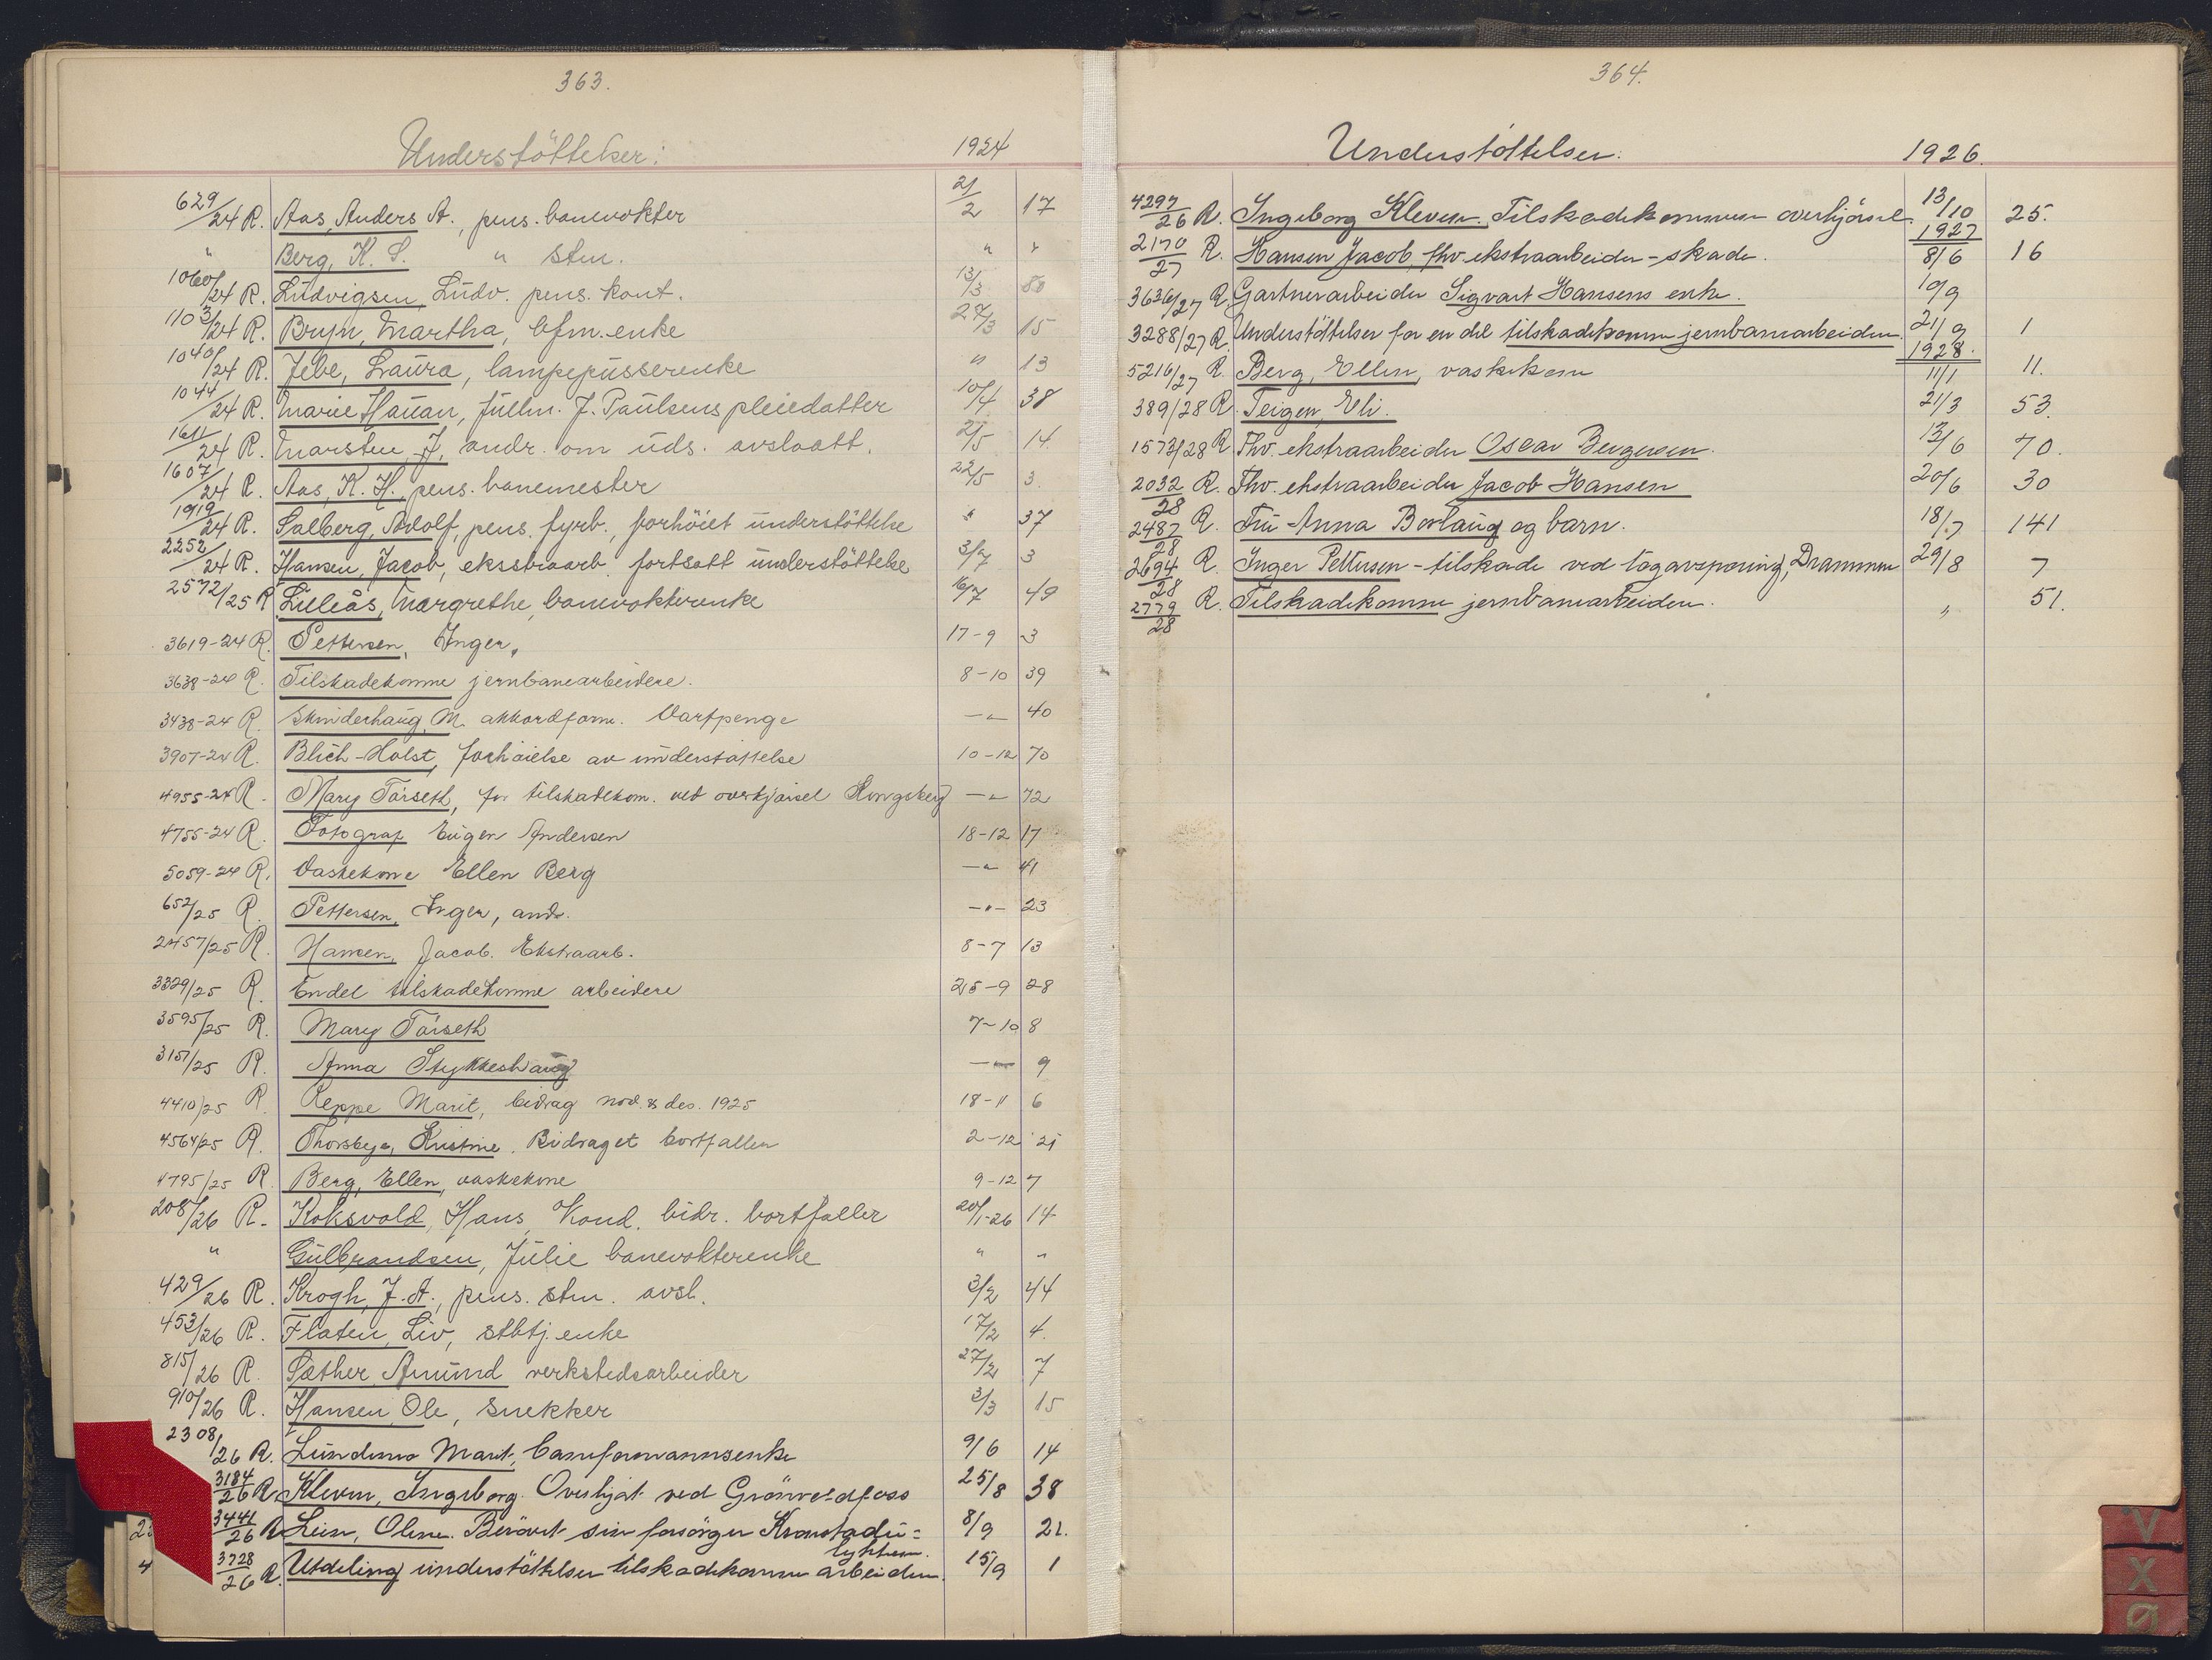 363.
Understöttelser: 1924
629/24 R. Aas, Anders A., pens. banevokter 21/2 17
" Berg, K. S. " stm. " "
1060/24 R. Ludvigsen, Ludv. pens. kont. 13/3 80
1103/24 R. Bryn, Martha, bfm. enke 27/3 15
1040/24 R. Jebe, Laura, lampepusserenke " 13
1044/24 R. Marie Hauan, fullm. J. Paulsens pleiedatter 10/4 38
1611/24 R. Marsten, J. andr. om uds. avslaatt. 2/5 14.
1607/24 R. Aas, K. H., pens. banemester 22/5 3.
1919/24 R. Salberg, Adolf, pens. fyrb., forhöiet understöttelse " 37
2252/24 R. Hansen, Jacob, ekstraarb. fortsatt understöttelse 3/7 3
2572/25 R. Lilleås, Margrethe, banevokterenke 16/7 49
3619-24 R. Pettersen, Inger, 17-9 3
3638-24 R. Tilskadekomne jernbanearbeidere. 8-10 39
3438-24 R. Skinderhaug, M. akkordform. Vartpenge -"- 40
3907-24 R. Blich-Holst, forhöielse av understöttelse 10-12 70
4955-24 R. Mary Törseth, for tilskadekom. ved overkjörsel Kongsberg -"- 72
4755-24 R. Fotograf Eugen Andersen 18-12 17
5059-24 R. Vaskekone Ellen Berg -"- 41
652/25 R. Pettersen, Inger, andr. -"- 23
2457/25 R. Hansen, Jacob. Ekstraarb. 8-7 13
3329/25 R. Endel tilskadekomne arbeidere 25-9 28
3595/25 R. Mary Törseth 7-10 8
3151/25 R. Anna Stykkeshaug -"- 9
4410/25 R. Reppe Marit, bidrag nov. & des. 1925 18-11 6
4564/25 R. Thorsbye, Kristine. Bidraget bortfallen 2-12 21
4795/25 R. Berg, Ellen, vaskekone 9-12 7
208/26 R. Koksvold, Hans, Kond. bidr. bortfaller 20/1-26 14
" Gulbrandsen, Julie banevokterenke " "
429/26 R. Krogh, J. A., pens. stm. avsl. 3/2 44
453/26 R. Flaten, Liv, stbtj. enke 17/2 4.
815/26 R. Sæther Amund verkstedsarbeider 27/2 7
910/26 R. Hansen, Ole, snekker 3/3 15
2308/26 R. Lundemo Marit, baneformannsenke 9/6 14
3184/26 R. Kleven, Ingeborg. Overkjört ved Grönvoldfoss 25/8 38
3441/26 R. Lein, Oline. Berövet sin forsörger Kronstadu=
lykken. 8/9 21.
3728/26 R. Utdeling understöttelser tilskadekomne arbeidere. 15/9 1
364.
Understöttelser: 1926.
4297/26 R. Ingeborg Kleven. Tilskadekommen overkjörsel. 13/10 25.
1927
2170/27 R. Hansen Jacob, fhv. ekstraarbeider - skade. 8/6 16
3636/27 R. Gartnerarbeider Sigvart Hansens enke. 10/9
3288/27 R. Understöttelser for en del tilskadekomne jernbanearbeidere. 21/9 1
1928.
5216/27 R. Berg, Ellen, vaskekone 11/1 11.
389/28 R. Teigen, Eli. 21/3 53.
1573/28 R. Fhv. ekstraarbeider Oscar Bergersen. 13/6 70.
2032/28 R. Fhv. ekstraarbeider Jacob Hansen 20/6 30
2487/28 R. Fru Anna Borlaug og barn. 18/7 141
2694/28 R. Inger Pettersen - tilskade ved togavsporing, Drammen 29/8 7
2779/28 R. Tilskadekomne jernbanearbeidere. " 51.
V
X
Ø